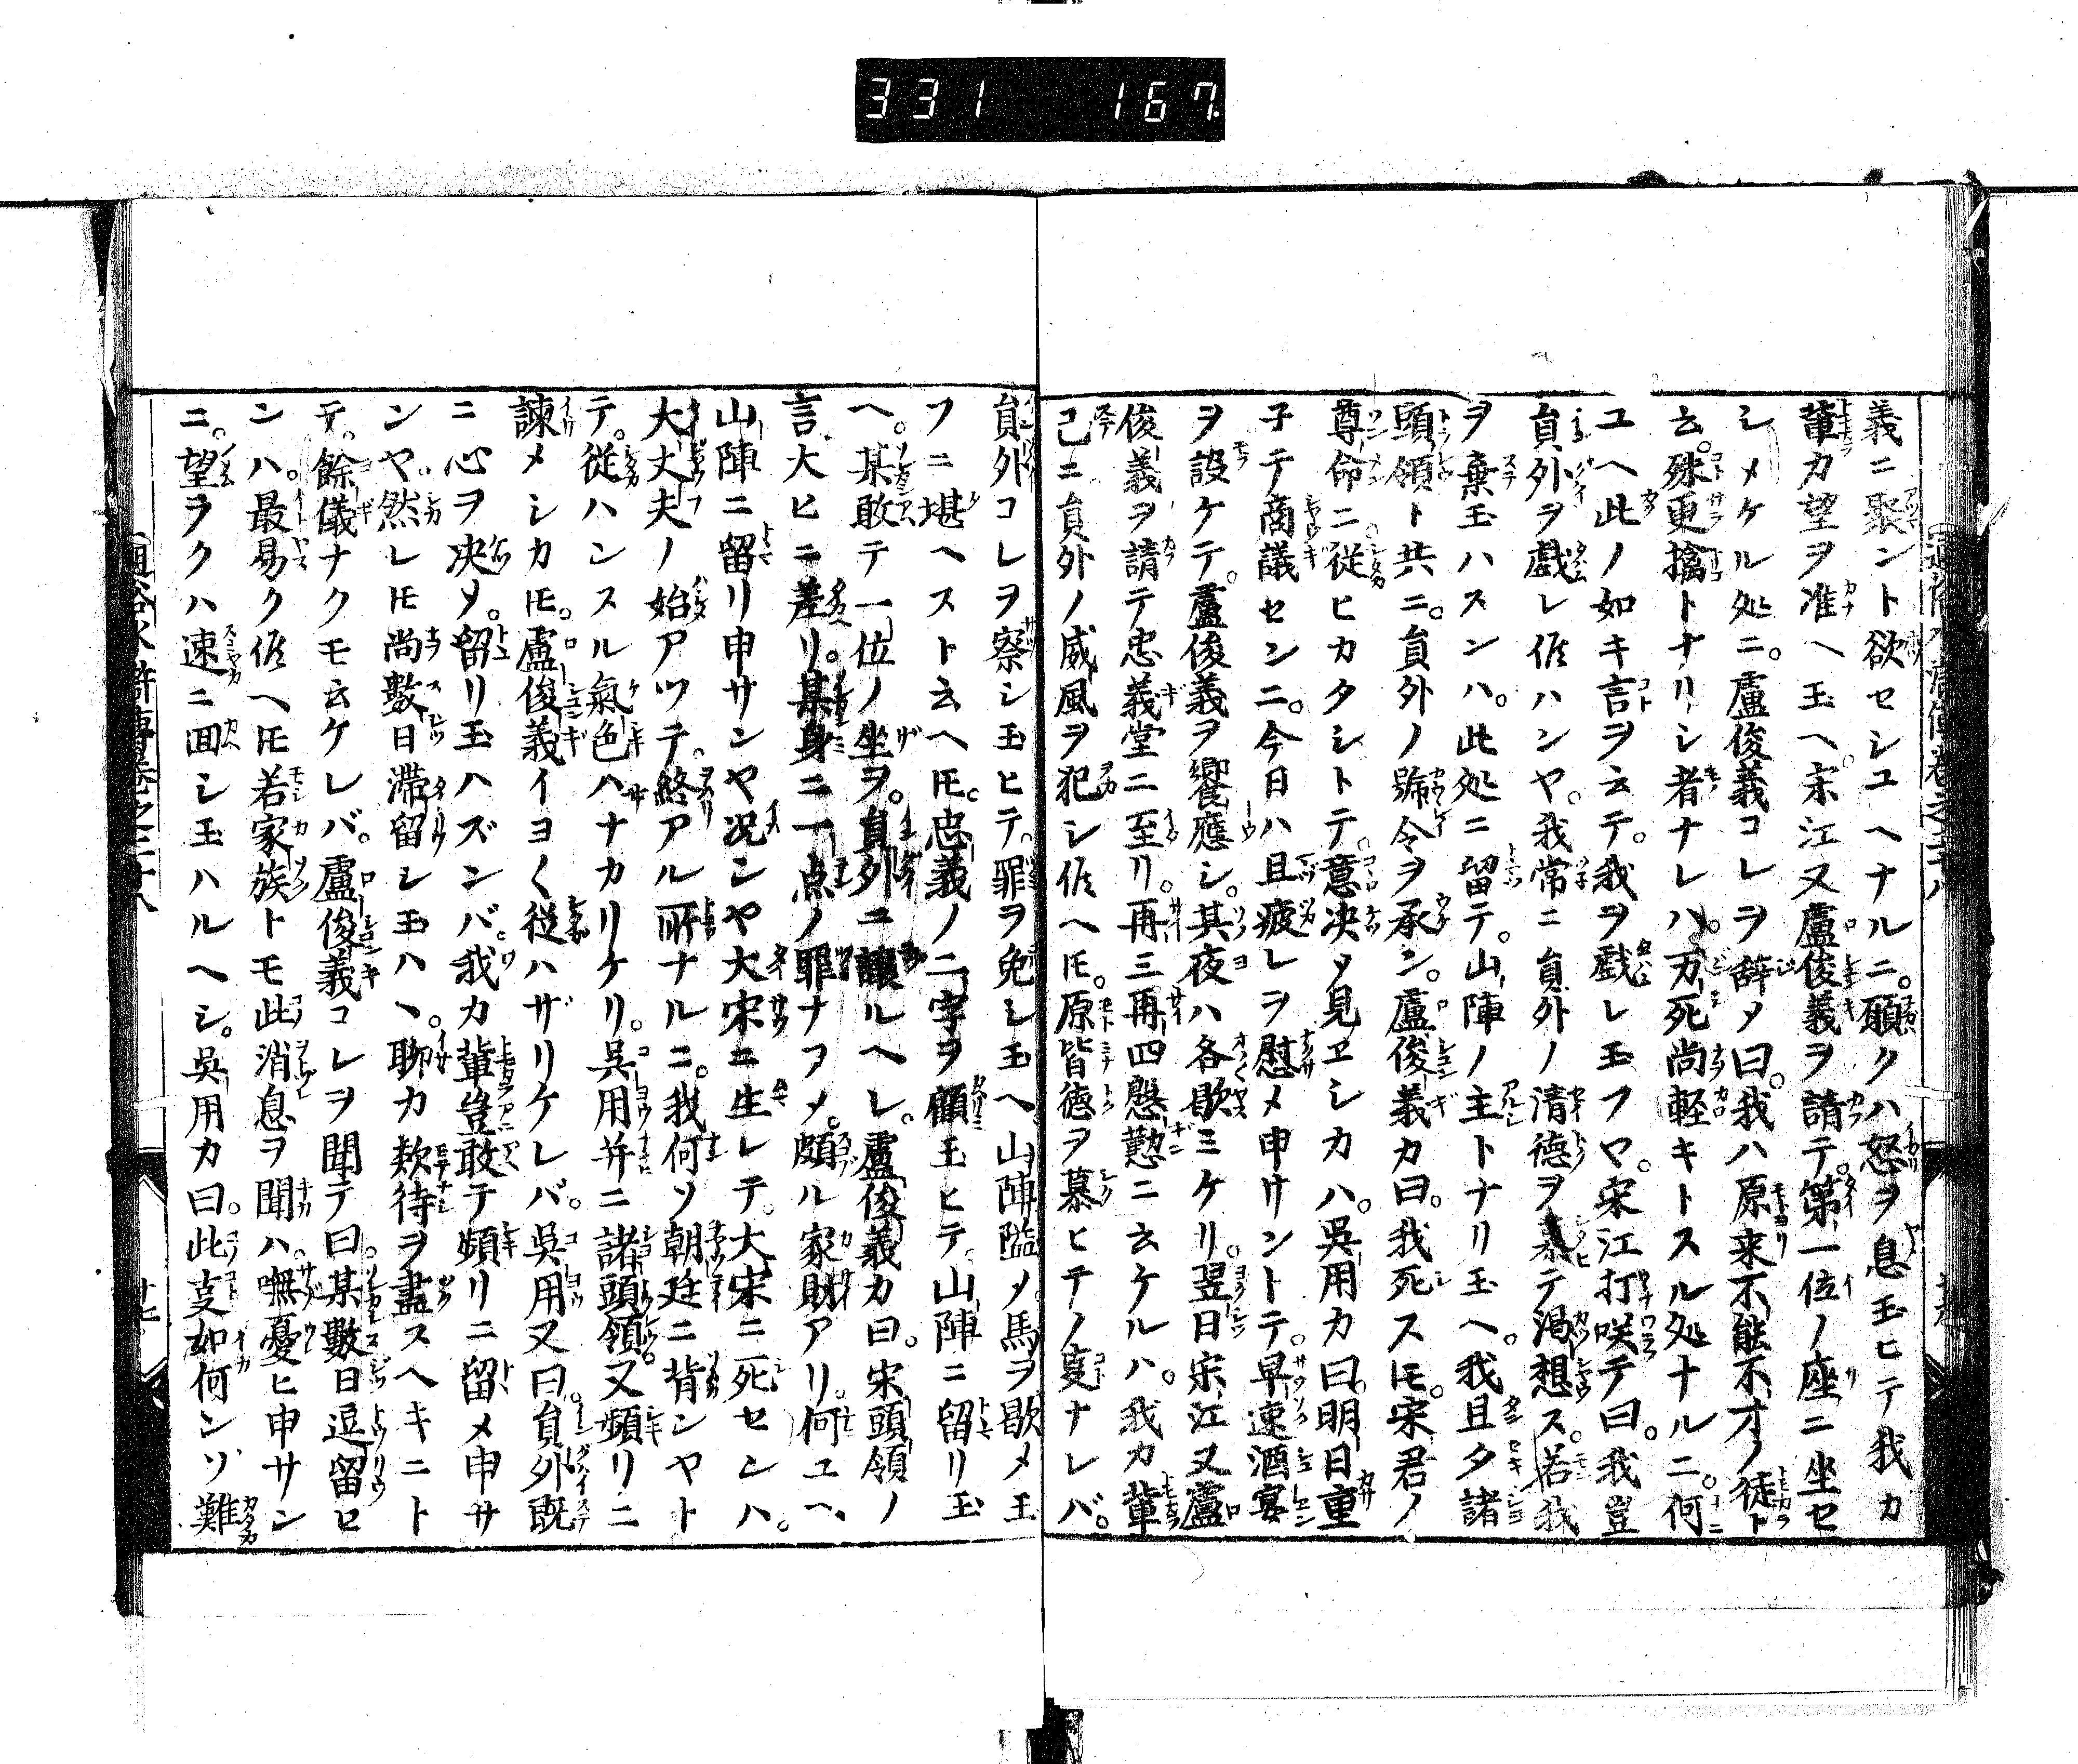 331 167
義ニ聚ント欲セシユヘナルニ。願クハ怒ヲ息玉ヒテ我カ
輩カ望ヲ准ヘ玉ヘ宋江又盧俊義ヲ請テ。第一位ノ座ニ坐セ
シメケル処ニ。盧俊義コレヲ辞メ曰。我ハ原来不能不才ノ徒ト
云。殊更擒トナリシ者ナレハ。万死尚軽キトスル処ナルニ。何
ユヘ此ノ如キ言ヲ云テ。我ヲ戯レ玉フヤ。宋江打咲テ曰。我豈
員外ヲ戯レ侭ハンヤ。我常ニ員外ノ清徳ヲ慕テ渇想ス。若我
ヲ棄玉ハスンハ。此処ニ留テ。山陣ノ主トナリ玉ヘ。我且夕諸
頭領ト共ニ。員外ノ號令ヲ承ン。盧俊義カ曰。我死スモ。宋君ノ
尊命ニ従ヒカタシトテ。意决メ見ヱシカハ。呉用カ曰。明日重
子テ商議センニ。今日ハ且疲レヲ慰メ申サントテ。早速酒宴
ヲ設ケテ。盧俊義ヲ饗應シ。其夜ハ各歇ミケリ。翌日宋江又盧
俊義ヲ請テ忠義堂ニ至リ。再三再四慇懃ニ云ケルハ。我カ輩
已ニ員外ノ威風ヲ犯シ侭ヘ𪜈。原皆徳ヲ慕ヒテノ𫝆ナレバ。
員外コレヲ察シ玉ヒテ。罪ヲ免シ玉ヘ。山陣隘メ馬ヲ歇メ玉
フニ堪ヘスト云ヘ𪜈。忠義ノ二字ヲ顧玉ヒテ。山陣ニ留リ玉
ヘ。某敢テ一位ノ坐ヲ。員外ニ讓ルヘレ。盧俊義カ曰。宋頭領ノ
言大ヒニ差リ。某身ニ一点ノ罪ナフメ。頗ル家財アリ。何ユヘ、
山陣ニ留リ申サンヤ况ンヤ大宋ニ生レテ。大宋ニ死センハ。
大丈夫ノ始アツテ。終アル所ナルニ。我何ソ朝廷ニ背ンヤト
テ。従ハンスル氣色ハナカリケリ。呉用并ニ諸頭領。又頻リニ
諫メシカ𪜈。盧俊義イヨく従ハザリケレバ。呉用又曰。員外既
ニ心ヲ决メ。留リ玉ハズンバ。我カ輩豈敢テ頻リニ留メ申サ
ンヤ。然レ𪜈尚數日滞留シ玉ハヽ。聊カ欵待ヲ盡スヘキニト
テ。餘儀ナクモ云ケレバ。盧俊義コレヲ聞テ曰。某數日逗留セ
ンハ。最易ク侭ヘ𪜈若家族トモ此消息ヲ聞ハ。嘸憂ヒ申サン
ニ。望ラクハ速ニ回シ玉ハルヘシ。呉用カ曰。此𫝆如何ンソ難